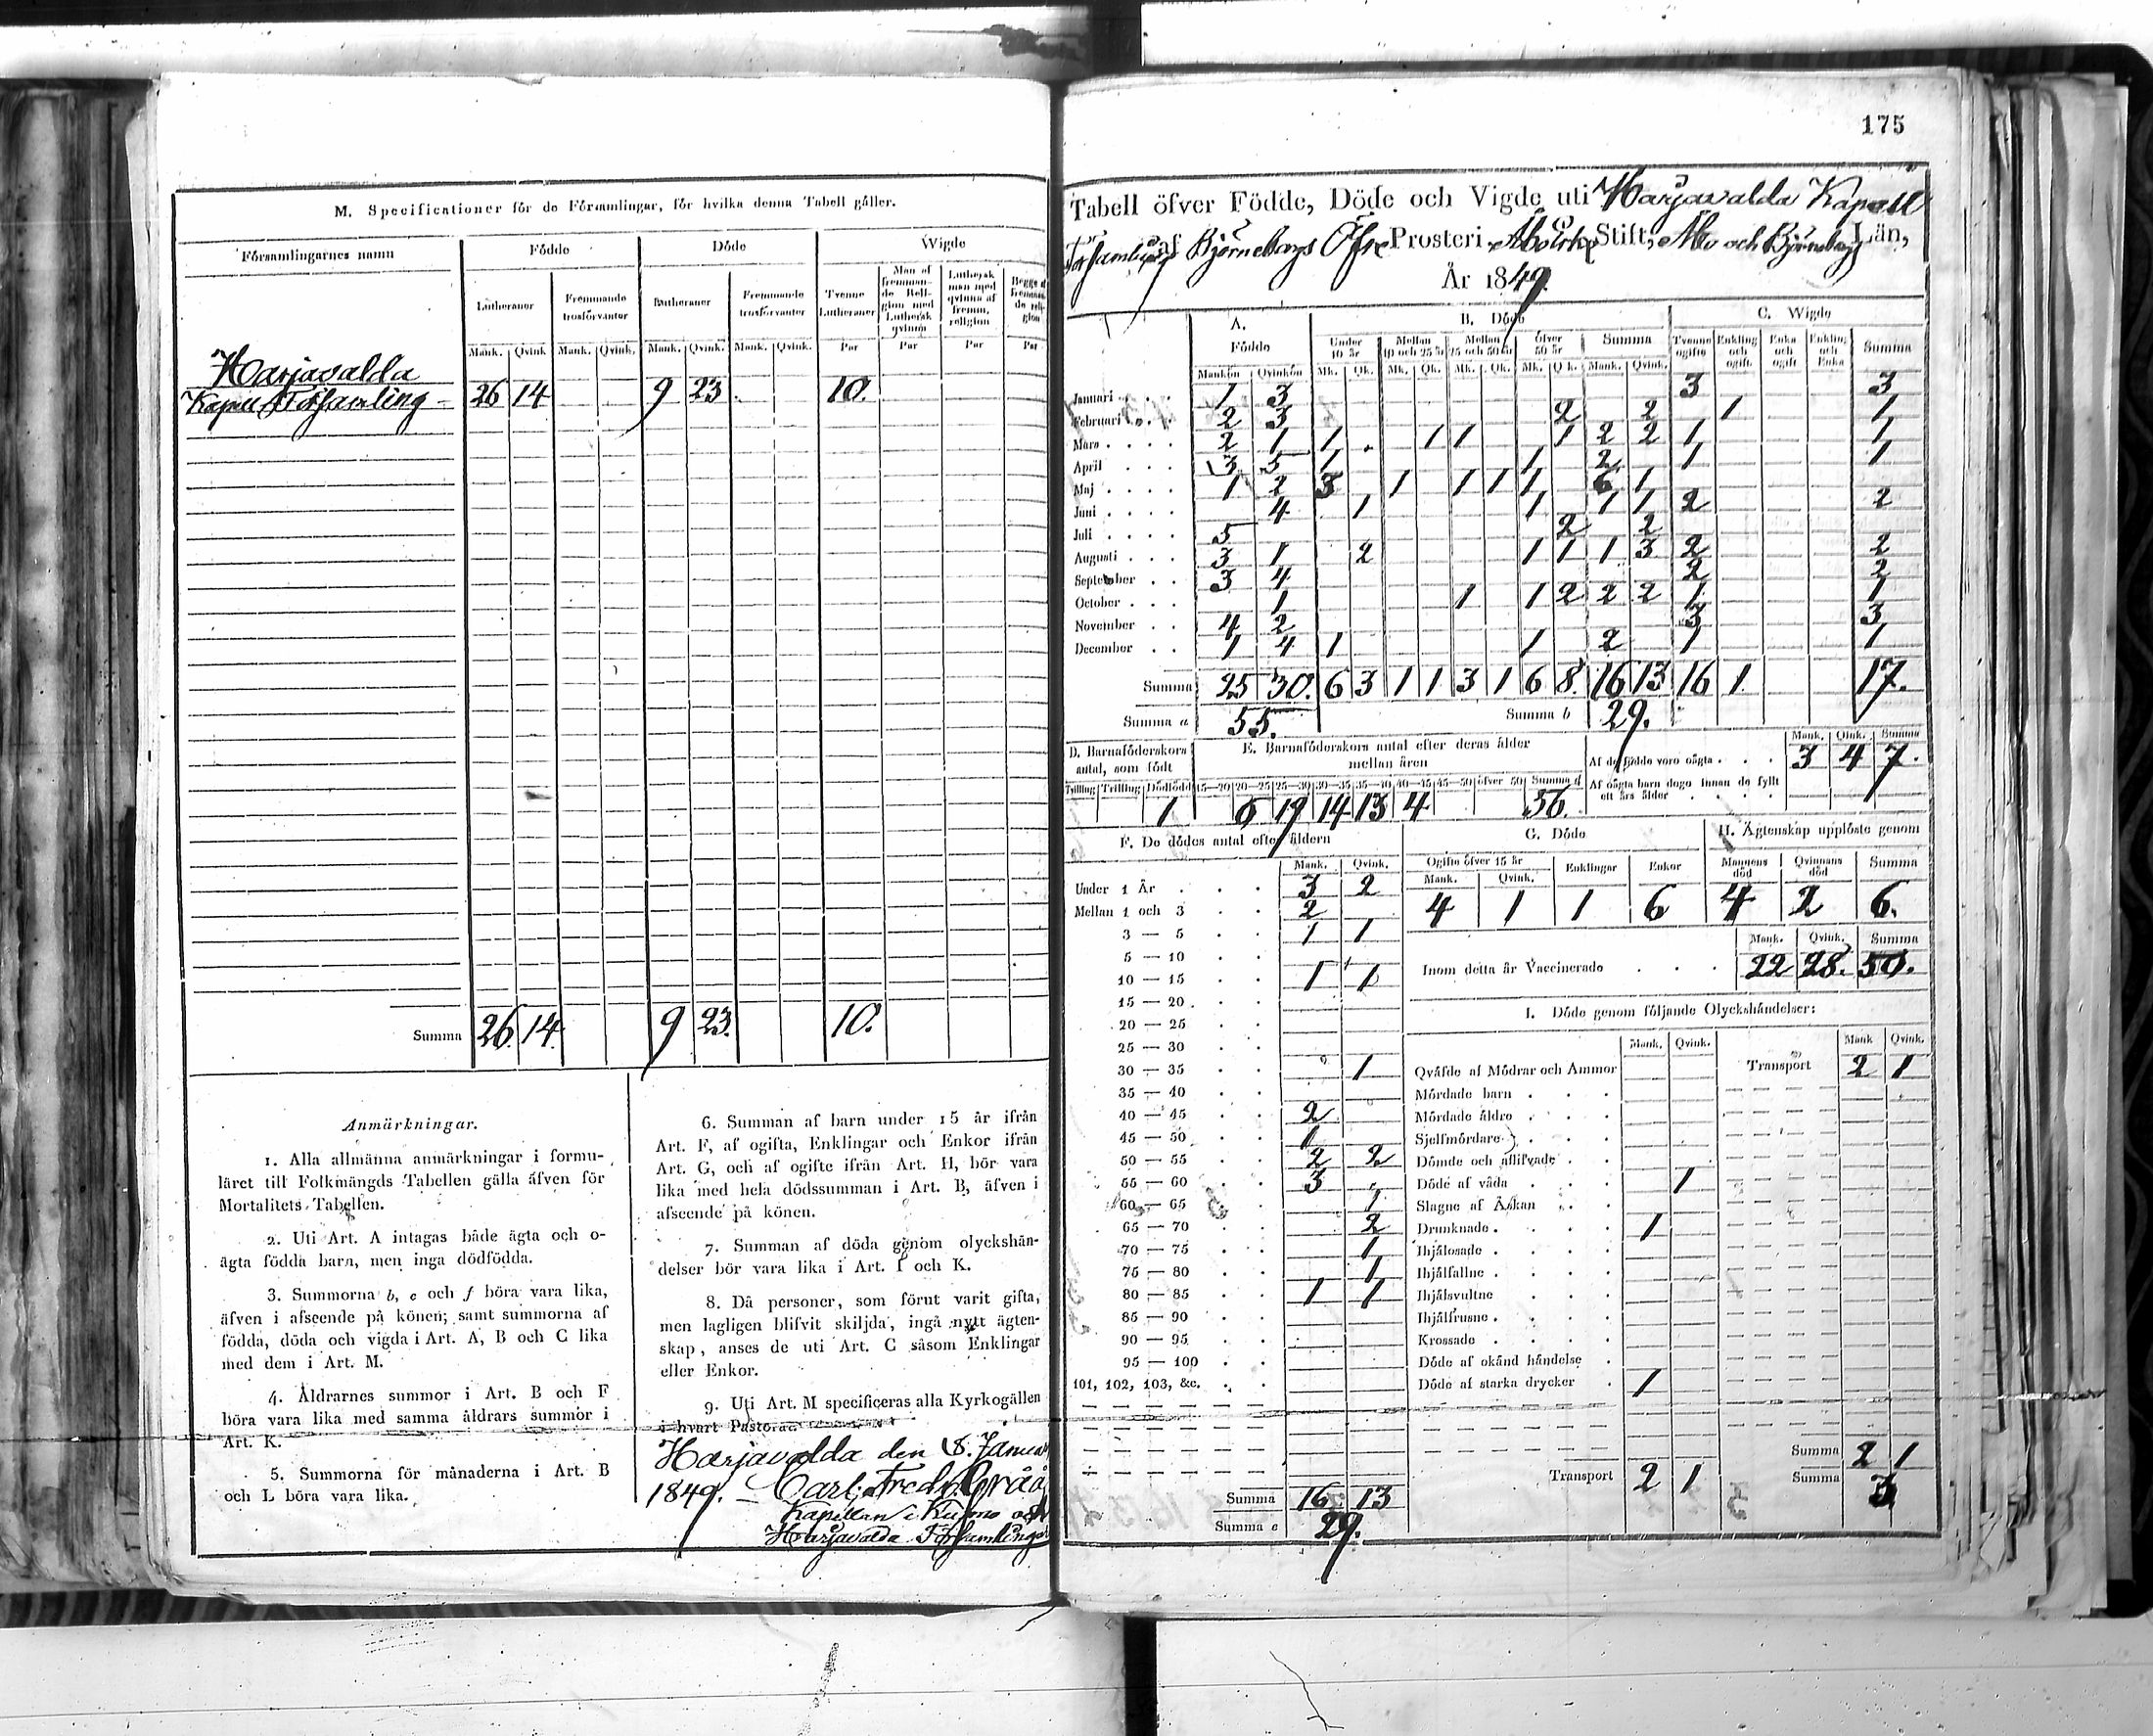 M. Specificationer för de Församlingar, för hvilka denna Tabell gäller.
Församlingarnes namn Födde Döde Wigde
Lutheraner Fremmande trosförvanter Lutheraner Fremmande trosförvanter Tvenne Lutheraner Man af fremmande Religion med Luthersk qvinna Luthersk man med qvinna af fremm. religion Begge af fremmande religion
Mank. Qvink Mank. Qvink. Mank. Qvink. Mank. Qvink. Par Par Par Par
Harjavalda
Kapell Församling 26 14 9 23 10.
Summa 26. 14. 9 23. 10.
Anmärkningar.
1. Alla allmänna anmärkningar i formu-
läret till Folkmängds Tabellen gälla äfven för
Mortalitets Tabellen.
2. Uti Art. A intagas både ägta och o-
ägta födda barn, men inga dödfödda.
3. Summorna b, e och f böra vara lika,
äfven i afseende på könen; samt summorna af
födda, döda och vigda i Art. A, B och C lika
med dem i Art. M.
4. Åldrarnes summor i Art. B och F
böra vara lika med samma åldrars summor i
Art. K.
5. Summorna för månaderna i Art. B
och L böra vara lika.
6. Summan af barn under 15 år ifrån
Art. F, af ogifta, Enklingar och Enkor ifrån
Art. G, och af ogifte ifrån Art. H, bör vara
lika med hela dödssumman i Art. B, äfven i
afseende på könen.
7. Summan af döda genom olyckshän-
delser bör vara lika i Art. I och K.
8. Då personer, som förut varit gifta,
men lagligen blifvit skiljda, ingå nytt ägten-
skap, anses de uti Art. C såsom Enklingar
eller Enkor.
9. Uti Art. M specificeras alla Kyrkogällen
i hvart Pastorat.
Harjavalda den 8. Januar
1849. Carl Fredr.
Kapellan i Kumo och
Harjavalda Församlingar
175
Tabell öfver Födde, Döde och Vigde uti Harjavalda Kapell
Församling af Björneborgs Öfre Prosteri, Åbo Erke Stift, Åbo och Björneborgs Län,
År 1849.
A. Födde B. Döde C. Wigde
Under 10 år Mellan 10 och 25 år Mellan 25 och 50 år öfver 50 år Summa Tvenne ogifte Enkling och ogift. Enka och ogift Enkling och Enka Summa
Mankön Qvinkön Mk. Qk. Mk. Qk. Mk. Qk. Mk. Qk. Mank. Qvink.
Januari 1 3 3 3
Februari 2 3 2 2 1 1
Mars 2 1 1 1 1 1 2 2 1 1
April 3 5 1 1 2 1 1
Maj 1 2 3 1 1 1 1 6 1
Juni 4 1 1 1 1 2 2
Juli 5 2 2
Augusti 3 1 2 1 1 1 3 2 2
September 3 4 2 2
October 1 1 1 2 2 2 1 1
November 4 2 3 3
December 1 4 1 1 2 1 1
Summa 25 30. 6 3 1 1 3 1 6 8. 16 13 16 1 17.
Summa a 55. Summa b 29.
D. Barnaföderskors antal, som födt E. Barnaföderskors antal efter deras ålder mellan åren
Tvilling Trilling Dödfödd 15—20 20—25 25—30 30—35 35—40 40—45 45—50 öfver 50 Summa d
1 6 19 14 13 4 56.
Mank. Qink. Summa
Af de födde voro oägta 3 4 7.
Af oägta barn dogo innan de fyllt ett års ålder
F. De dödes antal efter åldern
Mank. Qvink.
Under 1 År 3 2
Mellan 1 och 3 2
3 — 5 1 1
5 — 10
10 — 15 1 1
15 — 20
20 — 25
25 — 30
30 — 35 1
35 — 40
40 — 45 2
45 — 50 1
50 — 55 2 2
55 — 60 3
60 — 65 1
65 — 70 2
70 — 75 1
75 — 80 1
80 — 85 1 1
85 — 90
90 — 95
95 — 100
101, 102, 103, &c.
Summa 16 13
Summa e 29.
G. Döde H. Ägtenskap upplöste genom
Ogifte öfver 15 år Enklingar Enkor Mannens död Qvinnans död Summa
Mank. Qvink.
4 1 1 6 4 2 6.
Mank. Qvink. Summa
Inom detta år Vaccinerade 22 28. 50.
I. Döde genom följande Olyckshändelser:
Mank. Qvink. Mank Qvink.
Qväfde af Mödrar och Ammor Transport 2 1
Mördade barn
Mördade äldre
Sjelfmördare
Dömde och aflifvade
Döde af våda 1
Slagne af Åskan
Drunknade 1
Ihjälosade
Ihjälfallne
Ihjälsvultne
Ihjälfrusne
Krossade
Döde af okänd händelse
Döde af starka drycker 1
Summa 2 1
Transport 2 1 Summa 3